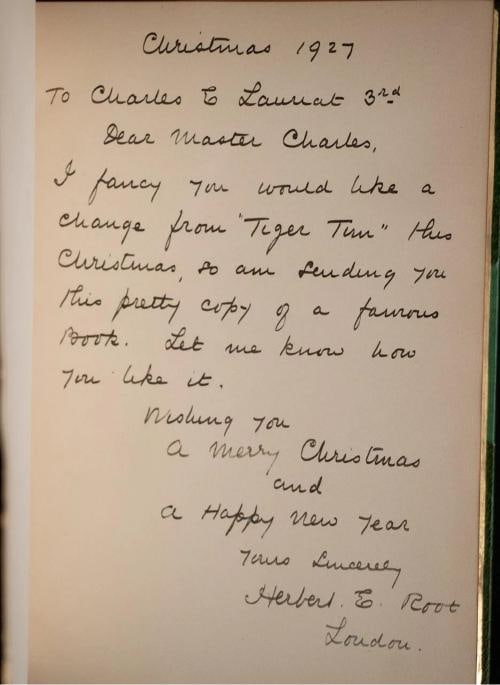 Christmas 1927
To Charles E Lauriat 3rd
Dear Master Charles,
I fancy you would like a
change from "Tiger Tim" this
Christmas, so am sending you
this pretty copy of a famous
Book. Let me know how
you like it.
Wishing you
a Merry Christmas
and
a Happy New Year
Yours Sincerely
Herbert. E. Root
London.